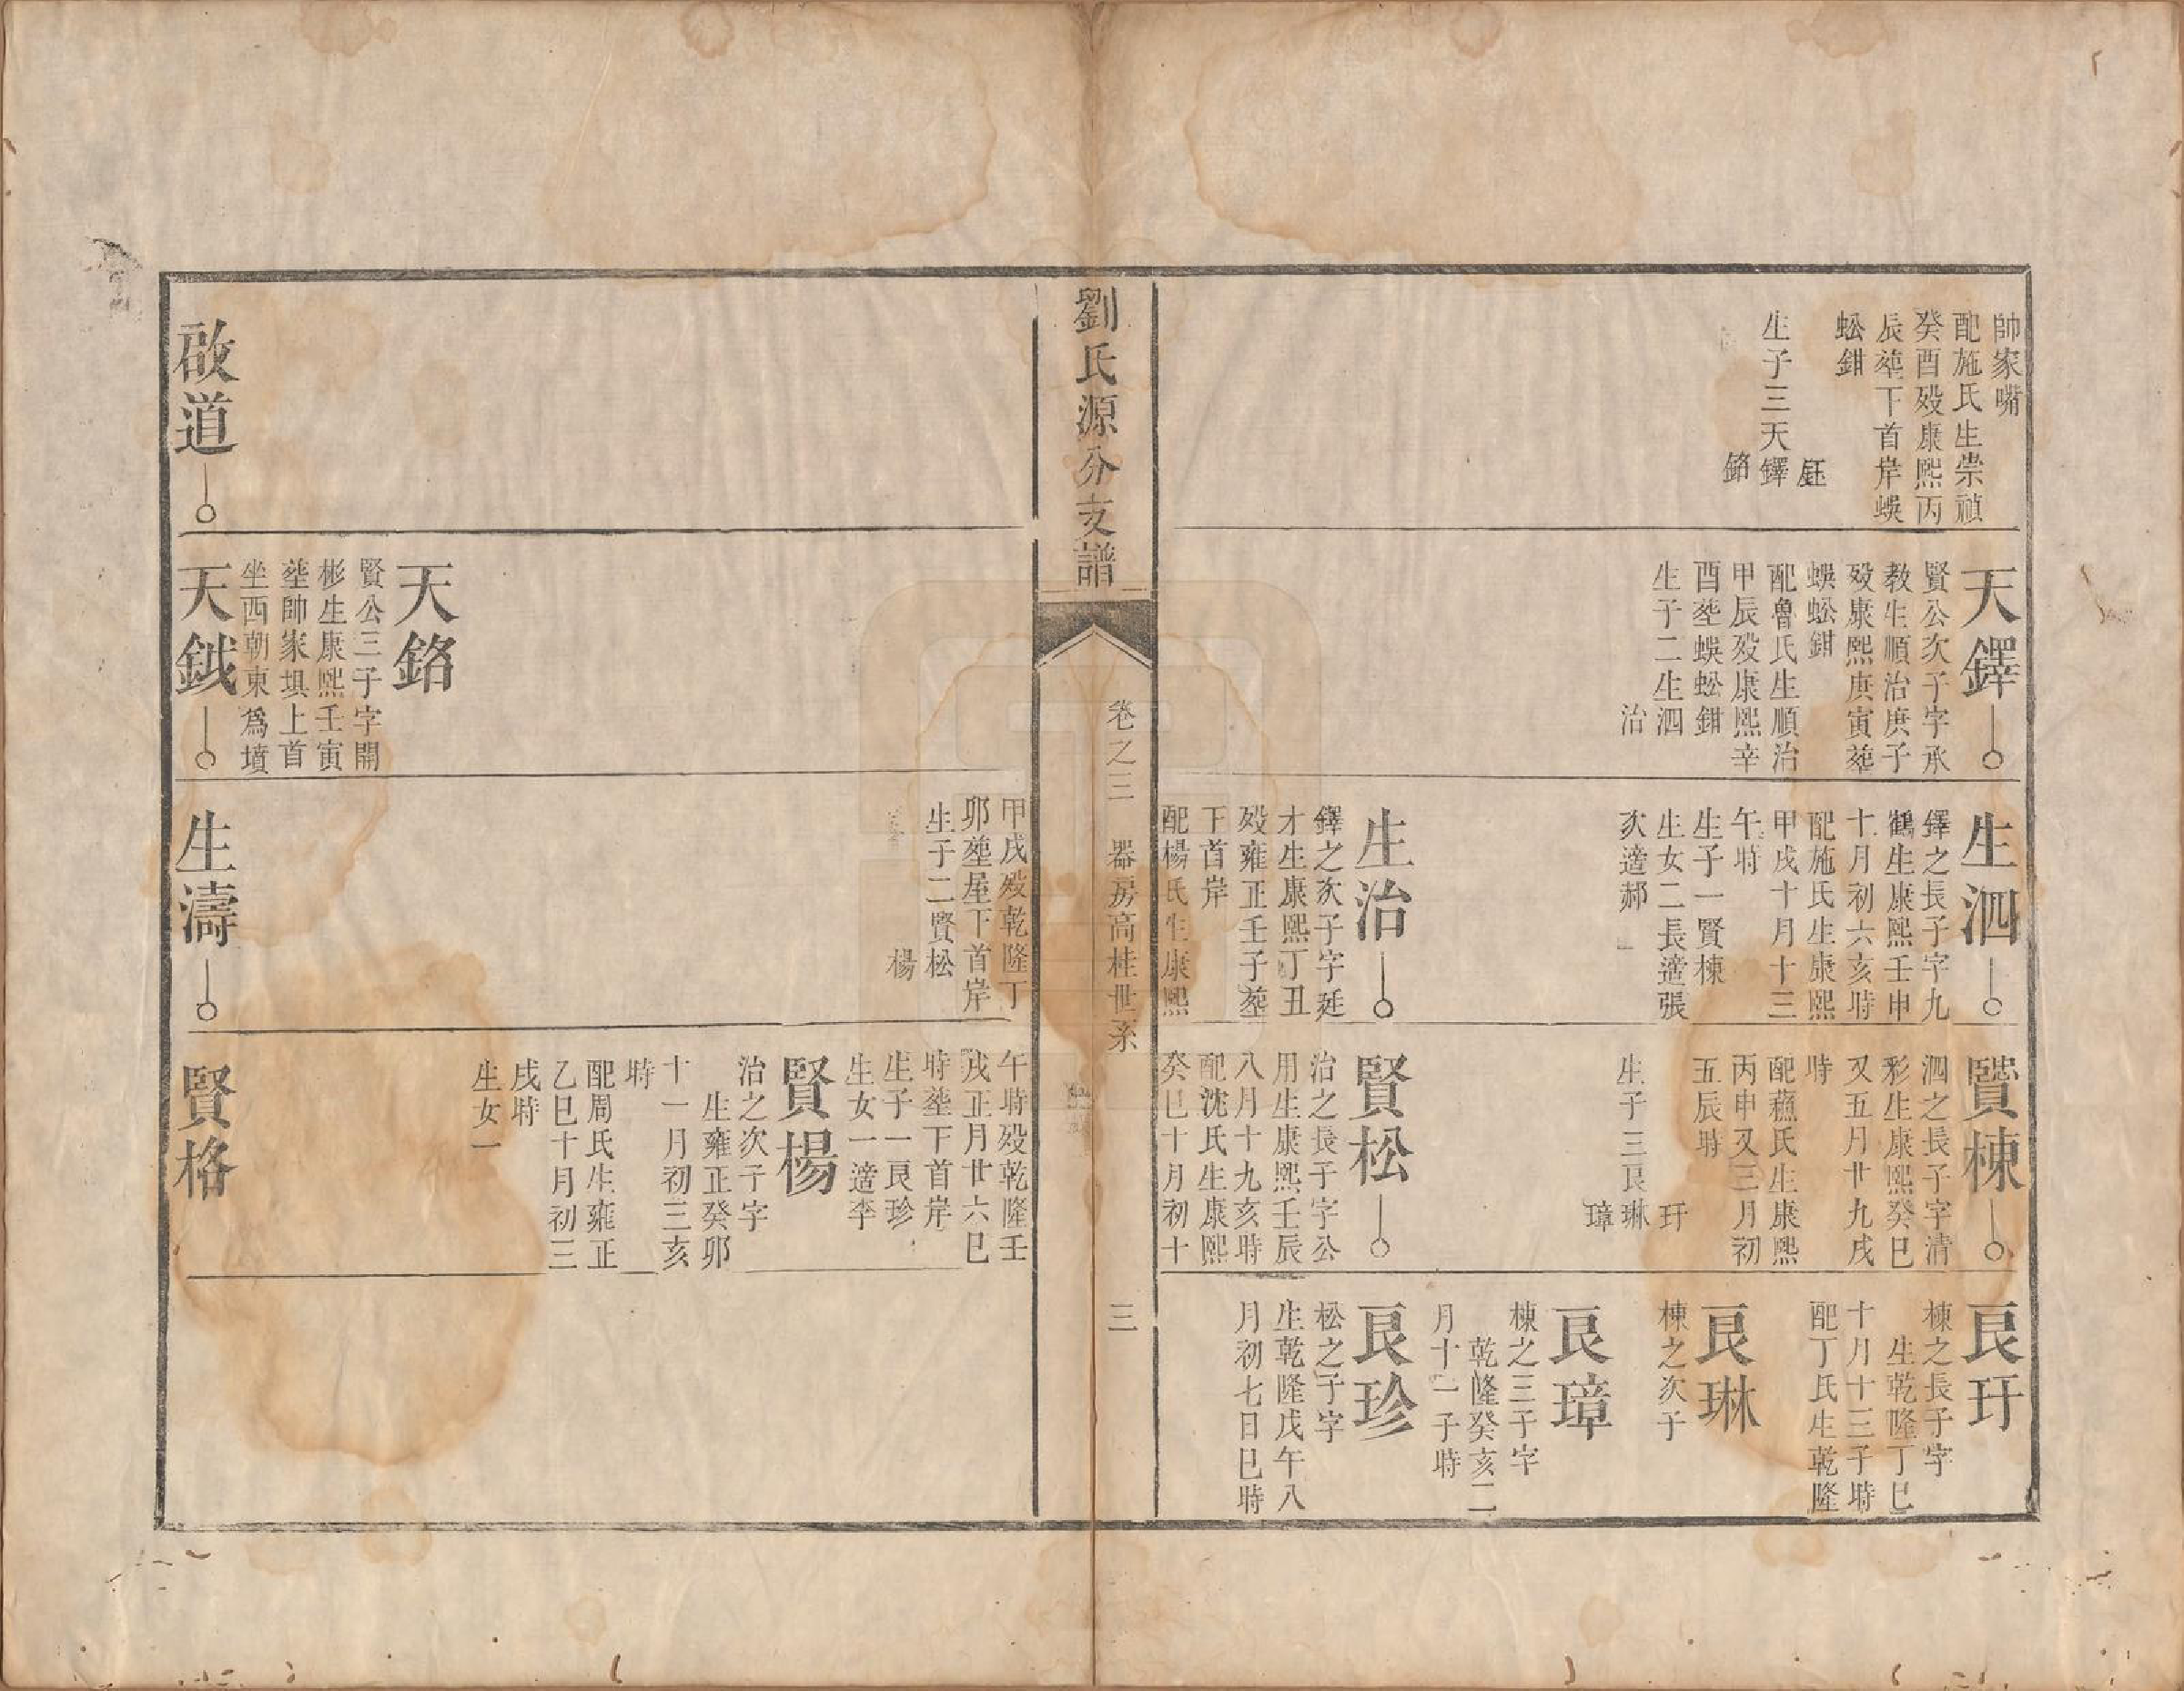 帥家嘴
配施氏生崇禎
癸酉歿康熙丙
辰塟下首岸蜈
蚣鉗
生子三天
鈺
鐸
鉻
天鐸
賢公次子字承
教生順治庚子
歿康熙庚寅塟
蜈蚣鉗
配魯氏生順治
甲辰歿康熙辛
酉塟蜈蚣鉗
生子二生泗
治
生泗
鐸之長子字九
鶴生康熙壬申
十月初六亥時
配施氏生康熙
甲戌十月十三
午時
生子一賢棟
生女二長適張
次適郝
生治
鐸之次子字廷
才生康熙丁丑
歿雍正壬子塟
下首岸
配楊氏生康熙
賢棟
泗之長子字清
彩生康熙癸巳
又五月廿九戌
時
配蘓氏生康熙
丙申又三月初
五辰時
生子三艮
玗
琳
璋
賢松
治之長子字公
用生康熙壬辰
八月十九亥時
配沈氏生康熙
癸巳十月初十
艮玗
棟之長子字
生乾隆丁巳
十月十三子時
配丁氏生乾隆
艮琳
棟之次子
艮璋
棟之三子字
乾隆癸亥二
月十一子時
艮珍
松之子字
生乾隆戊午八
月初七日巳時
劉氏源分支譜
卷之三 器房高桂世系
三
甲戌歿乾隆丁
卯塟屋下首岸
生子二賢松
楊
午時歿乾隆壬
戌正月廿六巳
時塟下首岸
生子一艮珍
生女一適李
賢楊
治之次子字
生雍正癸卯
十一月初三亥
時
配周氏生雍正
乙巳十月初三
戌時
生女一
天鉻
賢公三子字開
彬生康熙壬寅
塟帥家垻上首
坐西朝東爲墳
啟道
天鉞
生濤
賢格